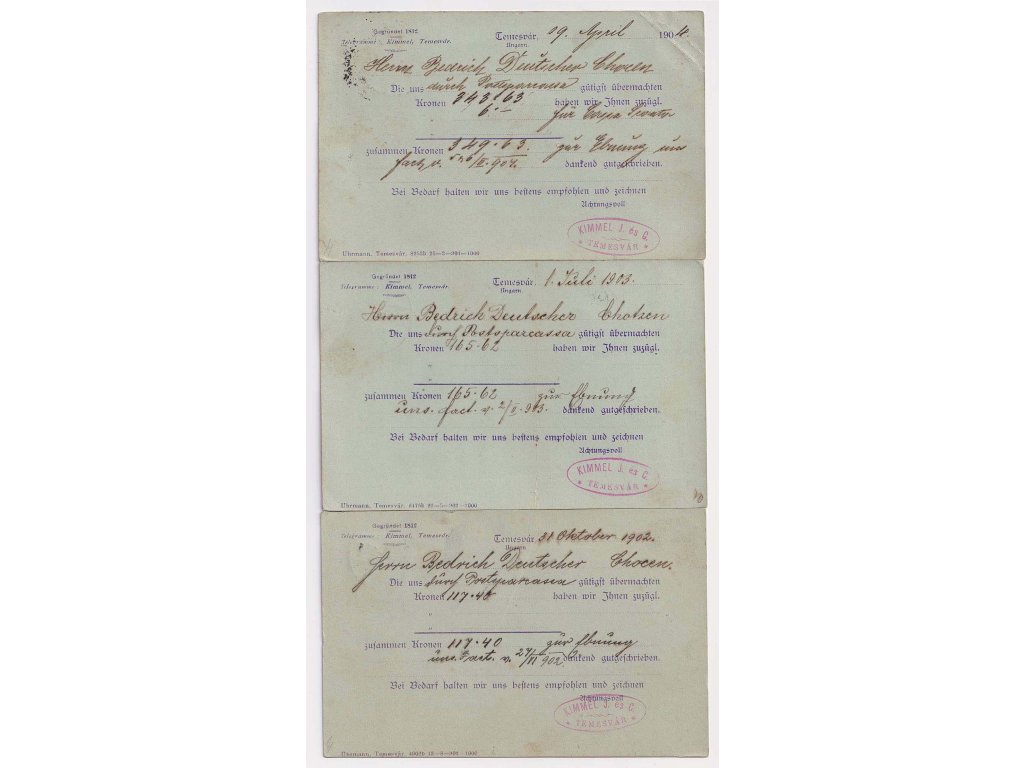 Gegründet 1812
Telegramme: Kimmel, Temesvár.
Temesvár, 19. April 1904.
Ungarn.
Herrn Bedrich Deutscher Chocen
Die uns durch Postsparcassa gütigst übermachten
Kronen 343.63 haben wir Ihnen zuzügl.
6.— für
zusammen Kronen 349.63. zur Ebnung uns
fact. v. dankend gutgeschrieben.
Bei Bedarf halten wir uns bestens empfohlen und zeichnen
Achtungsvoll
KIMMEL J. és C.
* TEMESVÁR *
Uhrmann, Temesvár.
Gegründet 1812
Telegramme: Kimmel, Temesvár.
Temesvár, 1. Juli 1903.
Ungarn.
Herrn Bedrich Deutscher Chotzen
Die uns durch Postsparcassa gütigst übermachten
Kronen 165.62 haben wir Ihnen zuzügl.
"
zusammen Kronen 165.62 zur Ebnung
uns. fact. v. 2/II. 903. dankend gutgeschrieben.
Bei Bedarf halten wir uns bestens empfohlen und zeichnen
Achtungsvoll
KIMMEL J. és C.
* TEMESVÁR *
Uhrmann, Temesvár.
Gegründet 1812
Telegramme: Kimmel, Temesvár.
Temesvár, 31 Oktober 1902.
Ungarn.
Herrn Bedrich Deutscher Chocen.
Die uns durch Postsparcassa gütigst übermachten
Kronen 117.40 haben wir Ihnen zuzügl.
"
zusammen Kronen 117.40 zur Ebnung
uns. Fact. v. dankend gutgeschrieben.
Bei Bedarf halten wir uns bestens empfohlen und zeichnen
Achtungsvoll
KIMMEL J. és C.
* TEMESVÁR *
Uhrmann, Temesvár.